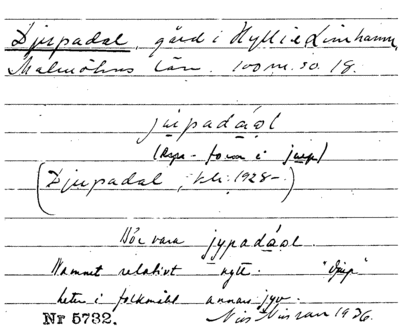 Djupadal, gård i Hyllie Limhamn,
Malmöhus län. 100 m. so. 18.
jupadáol
(Rspr-form i jup)
(Djupadal, kh. 1928-)
Bör vara jypadáol.
Namnet relativt nytt. "Djup"
heter i folkmålet annars jyv.
Nr 5732. Nils Nilsson 1936.